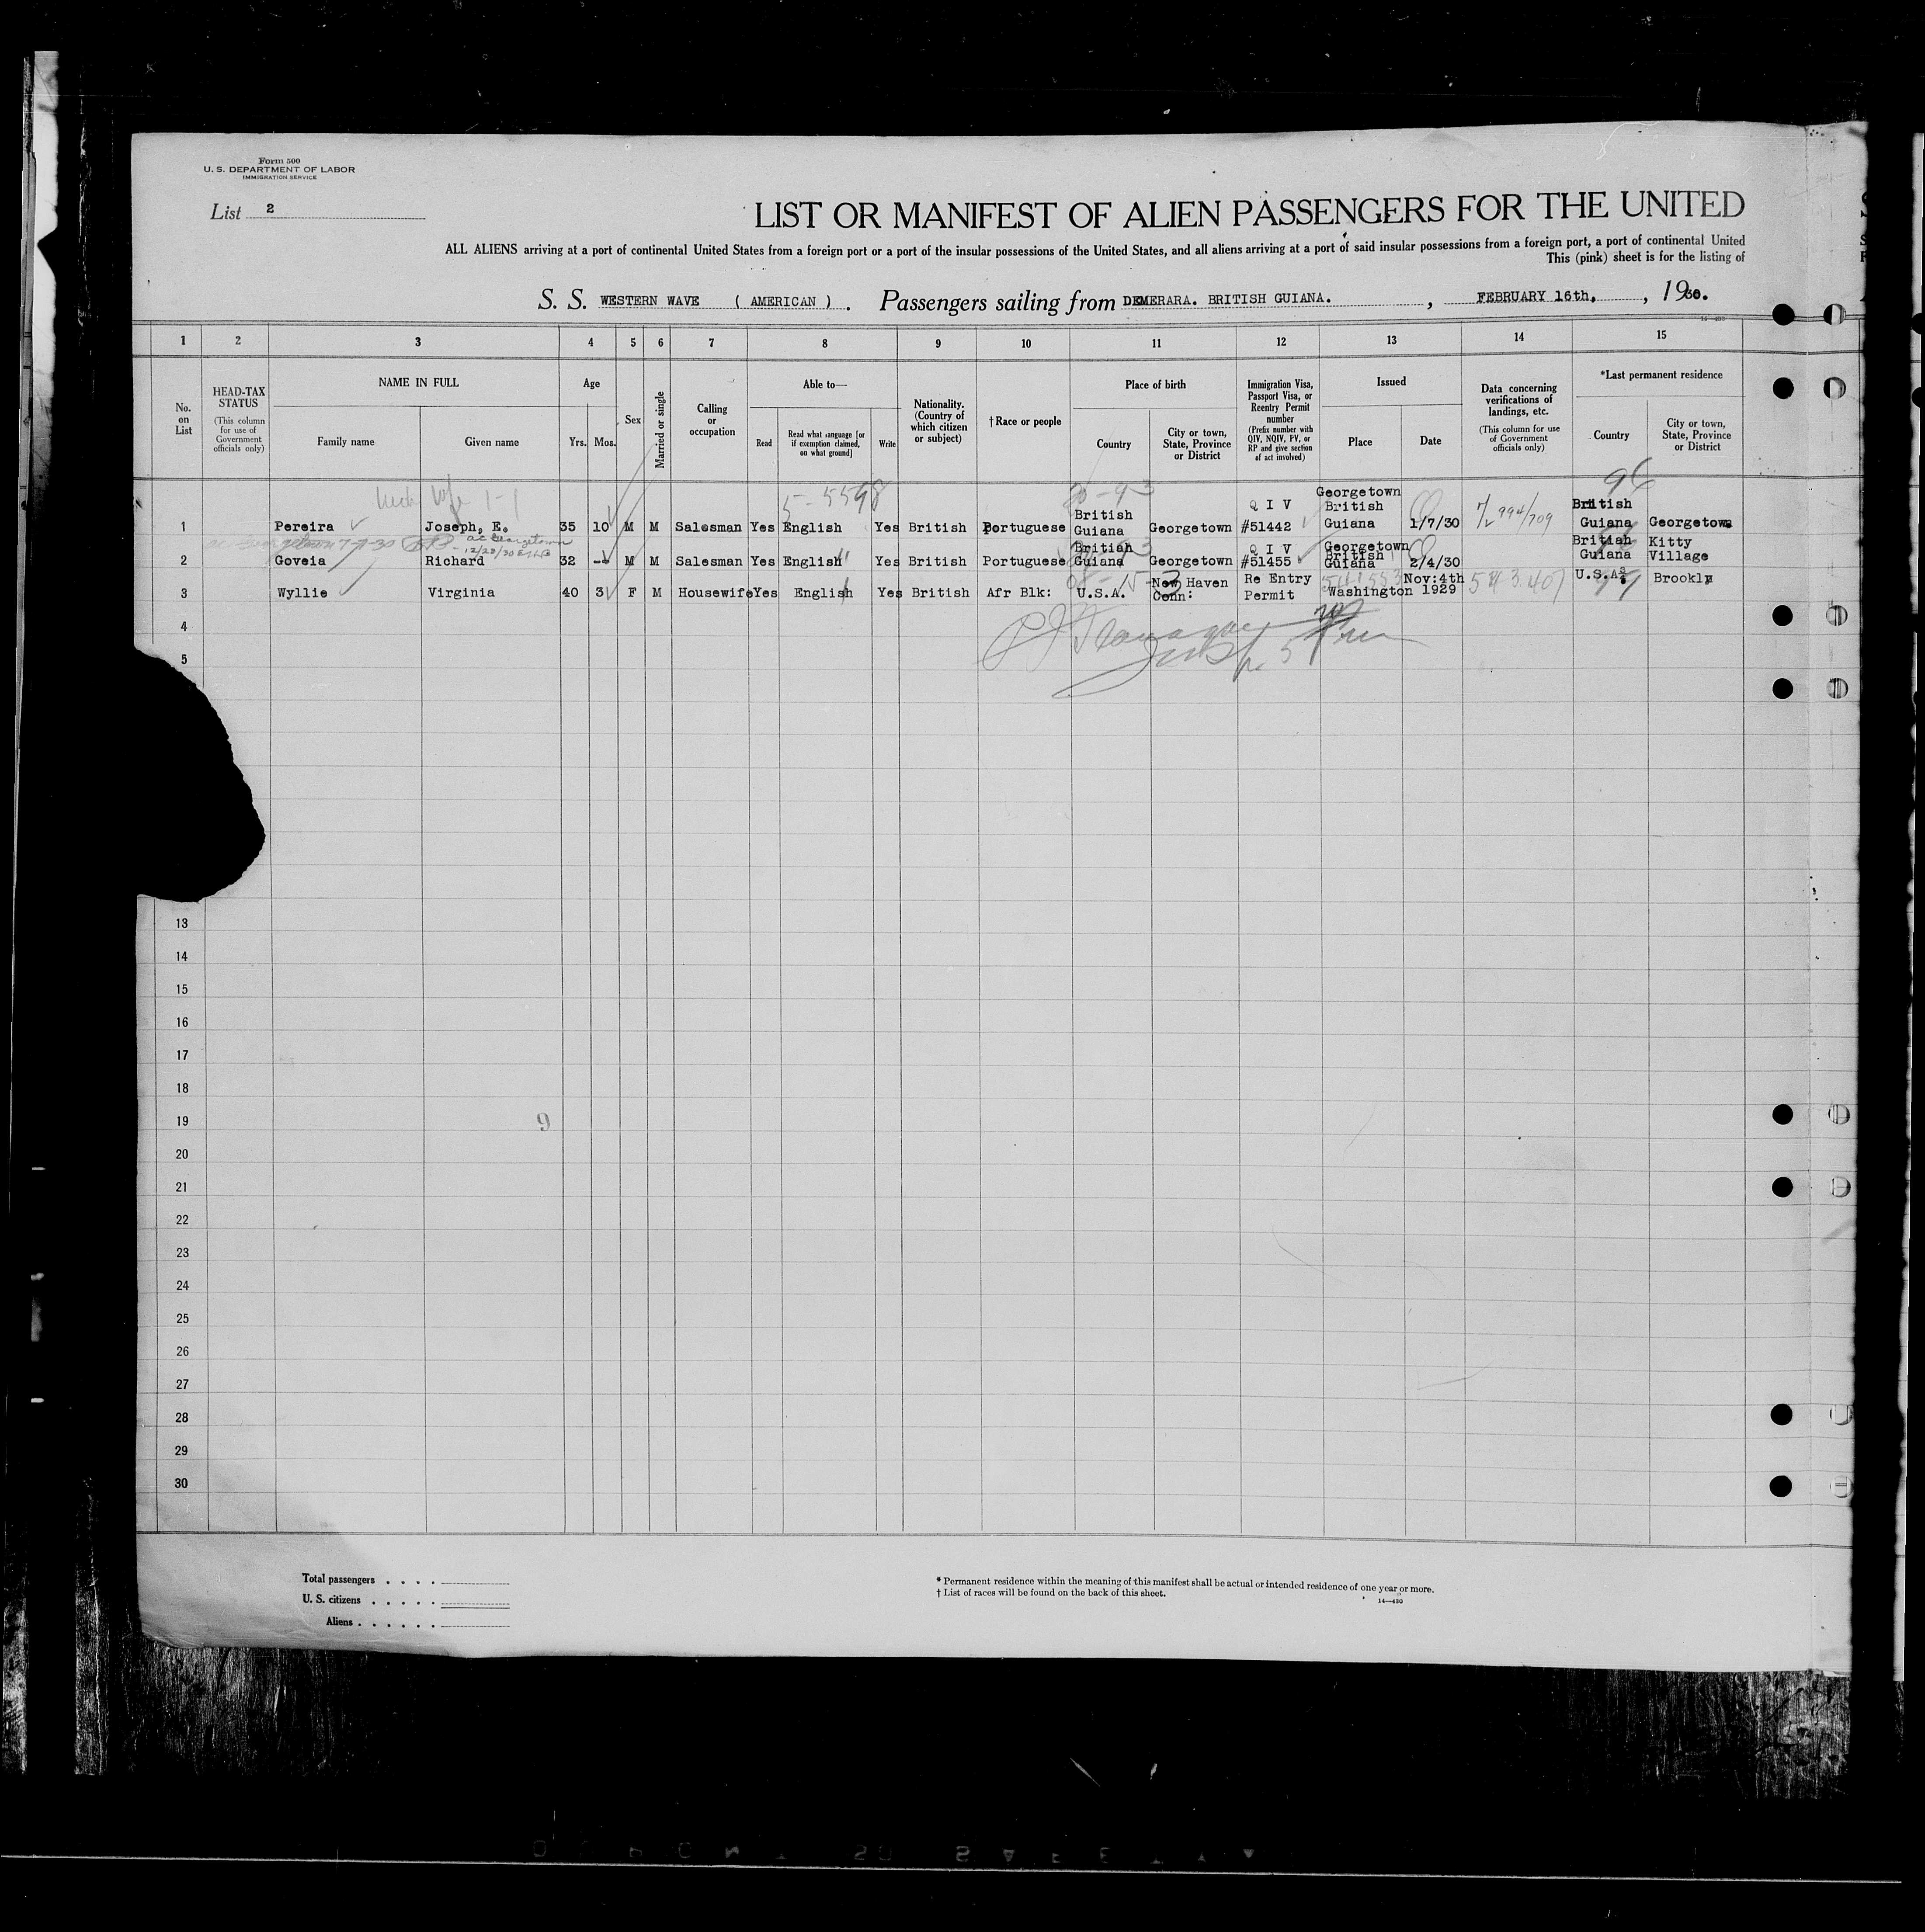 Form 500
U. S. DEPARTMENT OF LABOR
IMMIGRATION SERVICE
List 2
LIST OR MANIFEST OF ALIEN PASSENGERS FOR THE UNITED
ALL ALIENS arriving at a port of continental United States from a foreign port or a port of the insular possessions of the United States, and all aliens arriving at a port of said insular possessions from a foreign port, a port of continental United
This (pink) sheet is for the listing of
S. S. WESTERN WAVE ( AMERICAN ) . Passengers sailing from DEMERARA. BRITISH GUIANA. , FEBRUARY 16th, , 1930.
1 2 3 4 5 6 7 8 9 10 11 12 13 14 15
No. on List
HEAD-TAX STATUS
(This column for use of Government officials only)
NAME IN FULL
Family name Given name
Age
Yrs. Mos.
Sex
Married or single
Calling or occupation
Able to—
Read Read what language [or if exemption claimed, on what ground] Write
Nationality. (Country of which citizen or subject)
†Race or people
Place of birth
Country City or town, State, Province or District
Immigration Visa, Passport Visa, or Reentry Permit number
(Prefix number with QIV, NQIV, PV, or RP and give section of act involved)
Issued
Place Date
Data concerning verifications of landings, etc.
(This column for use of Government officials only)
*Last permanent residence
Country City or town, State, Province or District
5-5598
96
1 Pereira Joseph, E. 35 10 M M Salesman Yes English Yes British Portuguese British Guiana Georgetown Q I V #51442 Georgetown British Guiana 1/7/30 British Guiana Georgetown
ac Georgetown
12/23/30
2 Goveia Richard 32 -- M M Salesman Yes English Yes British Portuguese British Guiana Georgetown Q I V #51455 Georgetown British Guiana 2/4/30 British Guiana Kitty Village
3 Wyllie Virginia 40 3 F M Housewife Yes English Yes British Afr Blk: U.S.A. New Haven Conn: Re Entry Permit Washington Nov:4th 1929 543.407 U.S.A. Brooklyn
4
5
13
14
15
16
17
18
19
9
20
21
22
23
24
25
26
27
28
29
30
Total passengers
U. S. citizens
Aliens
* Permanent residence within the meaning of this manifest shall be actual or intended residence of one year or more.
† List of races will be found on the back of this sheet.
14—430